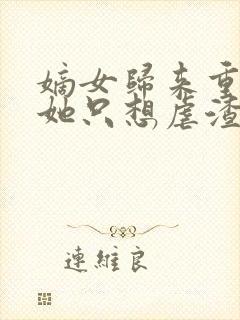 嫡女歸来重
她只想虐渣
連維良